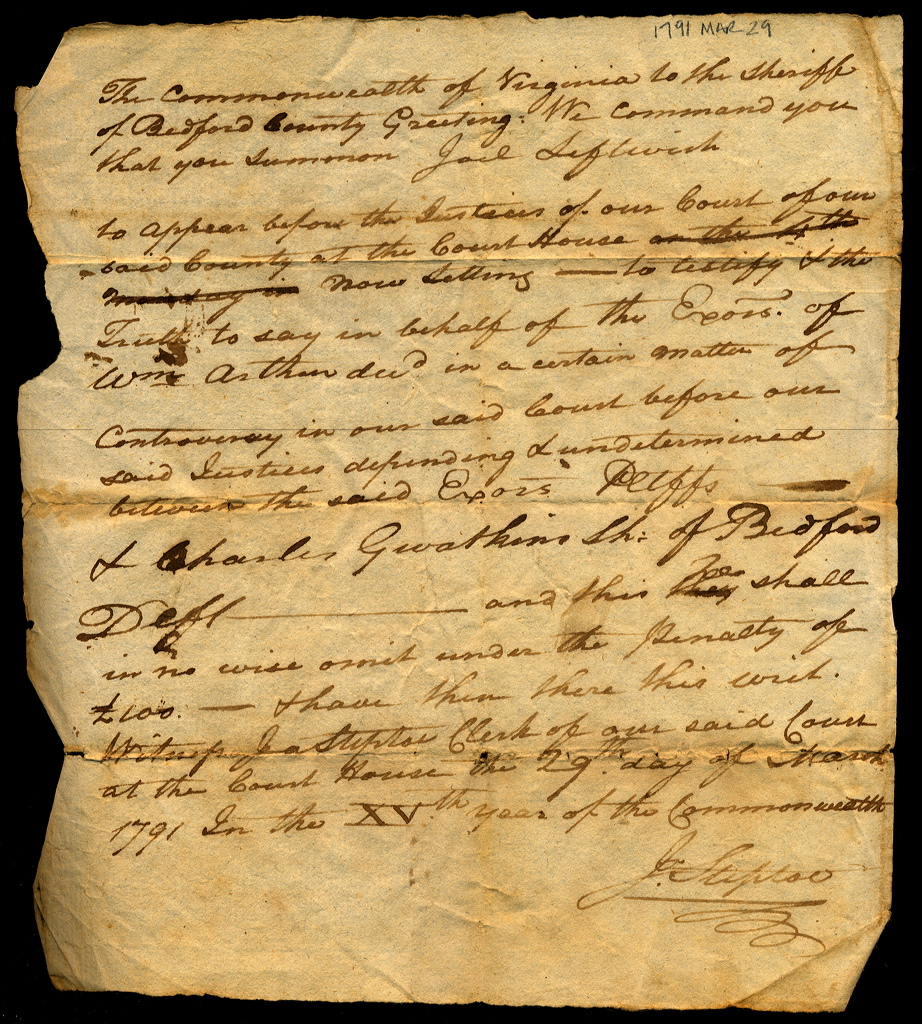 1791 MAR 29
The Commonwealth of Virginia to the Sheriff
of Bedford County Greeting: We command you
that you summon Joel Leftwich
to appear before the Justices of our Court of our
said County at the Court House on the 4th
monday in now Sitting — to testify & the
Truth to say in behalf of the Exors. of
Wm Arthur decd in a certain matter of
Controversy in our said Court before our
said Justices depending & undetermined
between the said Exors Pltffs —
& Charles Gwatkins Sh: of Bedford
Deft — and this he shall
in no wise omit under the Penalty of
£100. — & have then there this writ.
Witness Jas Steptoe Clerk of our said Court
at the Court House the 29th. day of March
1791 In the XVth year of the Commonwealth
J. Steptoe